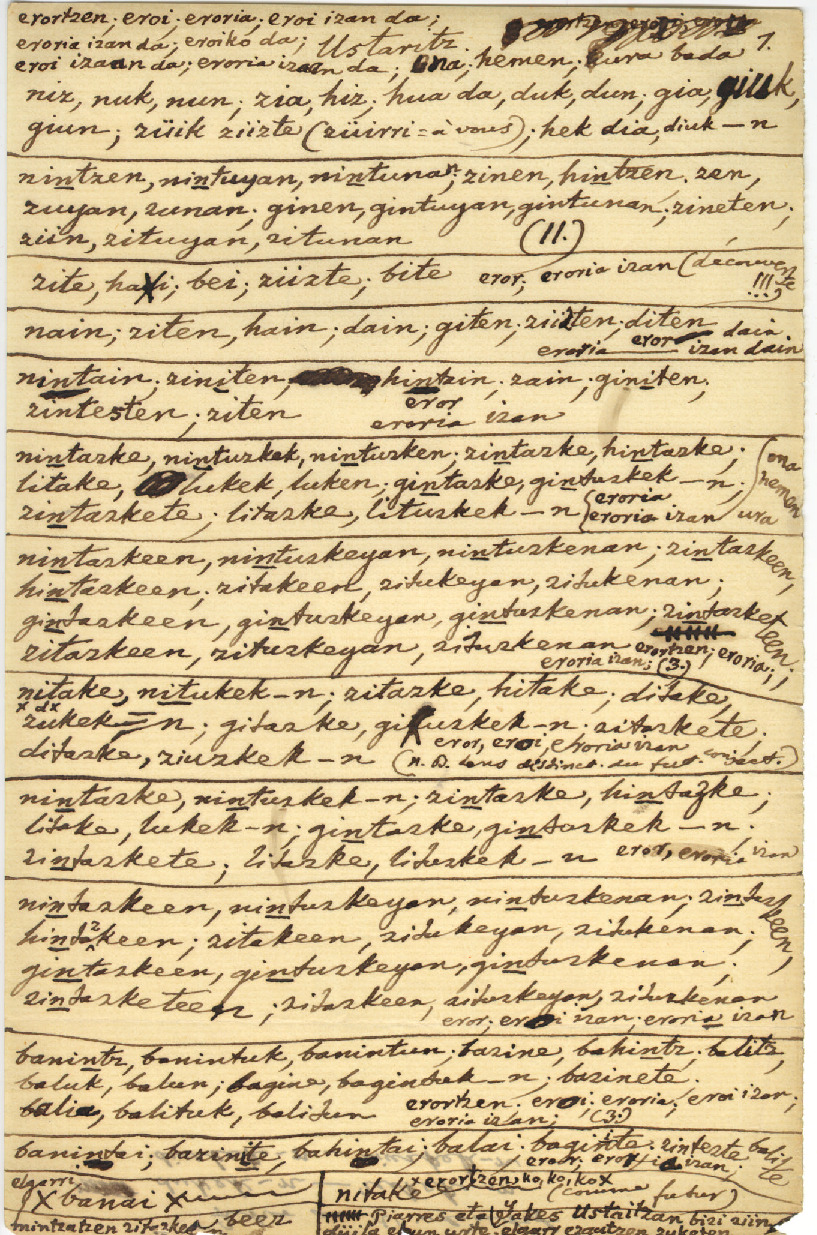 erortzen; eroi; eroria; eroi izan da;
eroria izan da; eroiko da; Ustaritz.
eroi izaan da; eroria izaan da; Ona, hemen, hura bada 1.
niz, nuk, nun; zia, hiz, hua da, duk, dun; gia, giuk,
giun; züik züzte (züirri = à vous); hek dia, diuk — n
nintzen, nintuyan, nintunan; zinen, hintzen. zen,
zuyan, zunan; ginen, gintuyan, gintunan; zineten;
ziin, zituyan, zitunan (11.)
zite, hai; bei; züzte; bite eror; eroria izan (découverte !!!)
nain; ziten, hain; dain; giten; züzten; diten
eroria eror izan dain
nintain; ziniten, hintzin; zain; giniten;
zintesten; ziten eror
eroria izan
nintazke, nintuzkek, nintuzken; zintazke, hintazke;
litake, lukek, luken; gintazke, gintuzkek — n;
zintazkete; litazke, lituzkek — n (eroria
eroria izan (ona hemen ura
nintazkeen, nintuzkeyan, nintuzkenan; zintazkeen,
hintazkeen; zitakeen, zitukeyan, zitukenan;
gintazkeen, gintuzkeyan, gintuzkenan; zintazketeen;
zitazkeen, zituzkeyan, zituzkenan erortzen; eroria;
eroria izan; (3.)
nitake, nitukek-n; zitazke, hitake; ditake,
zukek = n; gitazke, gituzkek-n. zitazkete.
ditazke, ziuzkek — n eror, eroi, eroria izan
(n. B. bens distinct. du fut. conject.)
nintazke, nintuzkek-n; zintazke, hintazke;
litake, lukek-n; gintazke, gintuzkek — n.
zintazkete; litazke, lituzkek — n eror, eroria izan
nintazkeen, nintuzkeyan, nintuzkenan; zintazkeen,
hintazkeen; zitakeen, zitukeyan, zitukenan;
gintazkeen, gintuzkeyan, gintuzkenan;
zintazketeen; zitazkeen, zituzkeyan, zituzkenan
eror; eroi izan; eroria izan
banintz, banintuk, banintun; bazine, bahintz; balitz,
baluk, balun; bagine, bagintuk — n; bazinete.
balia, balituk, balitun erortzen. eroi; eroria; eroi izan;
eroria izan; (3.)
banintai; bazinite, bahintai; balai. baginte. zintezte balite
eror; eroi izan;
elgarri
x banai x
nitake x erortzen ko, ko, iko x
(comme futur)
mintzatzen zitazken beez
Piarres eta Yakes Ustaitzan bizi ziin